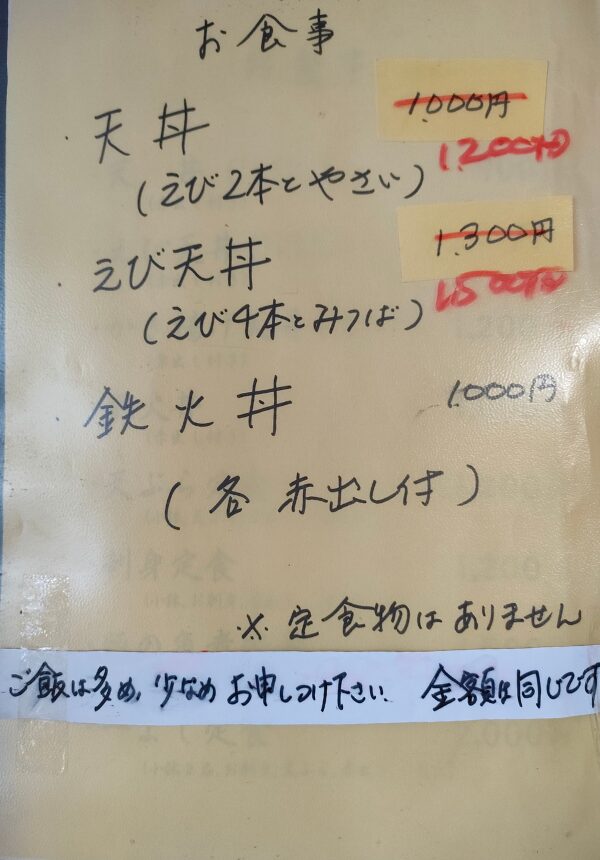 お食事
天丼 1,000円
1,200円
(えび2本とやさい)
えび天丼 1,300円
1,500円
(えび4本とみつば)
鉄火丼 1,000円
(各 赤出し付)
刺身定食
※ 定食物はありません
ご飯は多め、少なめ お申しつけ下さい 金額は同じです